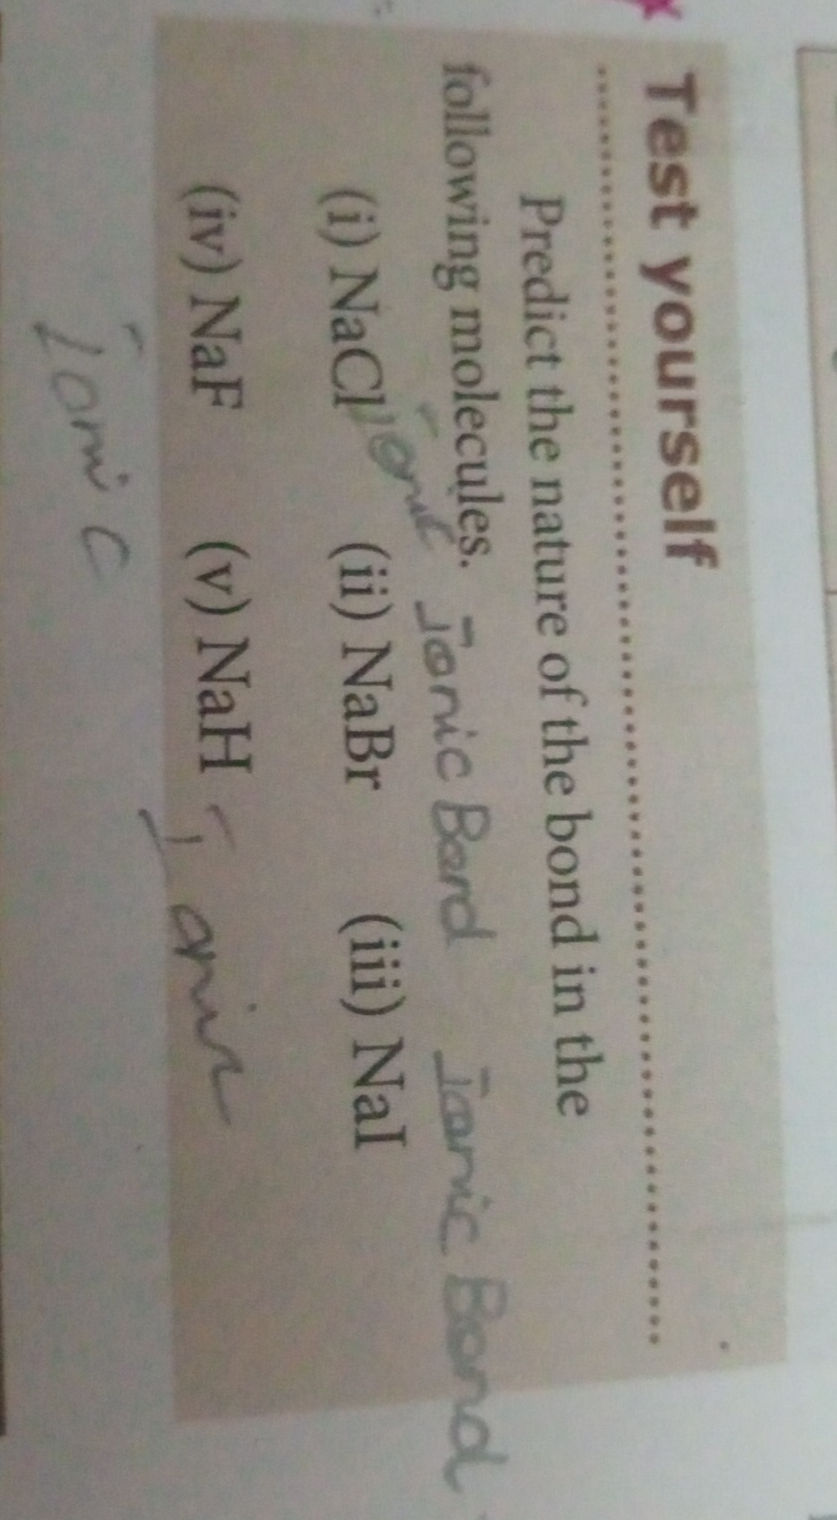 Test yourself
Predict the nature of the bond in the
following molecules. Ionic Bond Ionic Bond
(i) NaCl Ionic (ii) NaBr (iii) NaI
(iv) NaF (v) NaH Ionic
Ionic